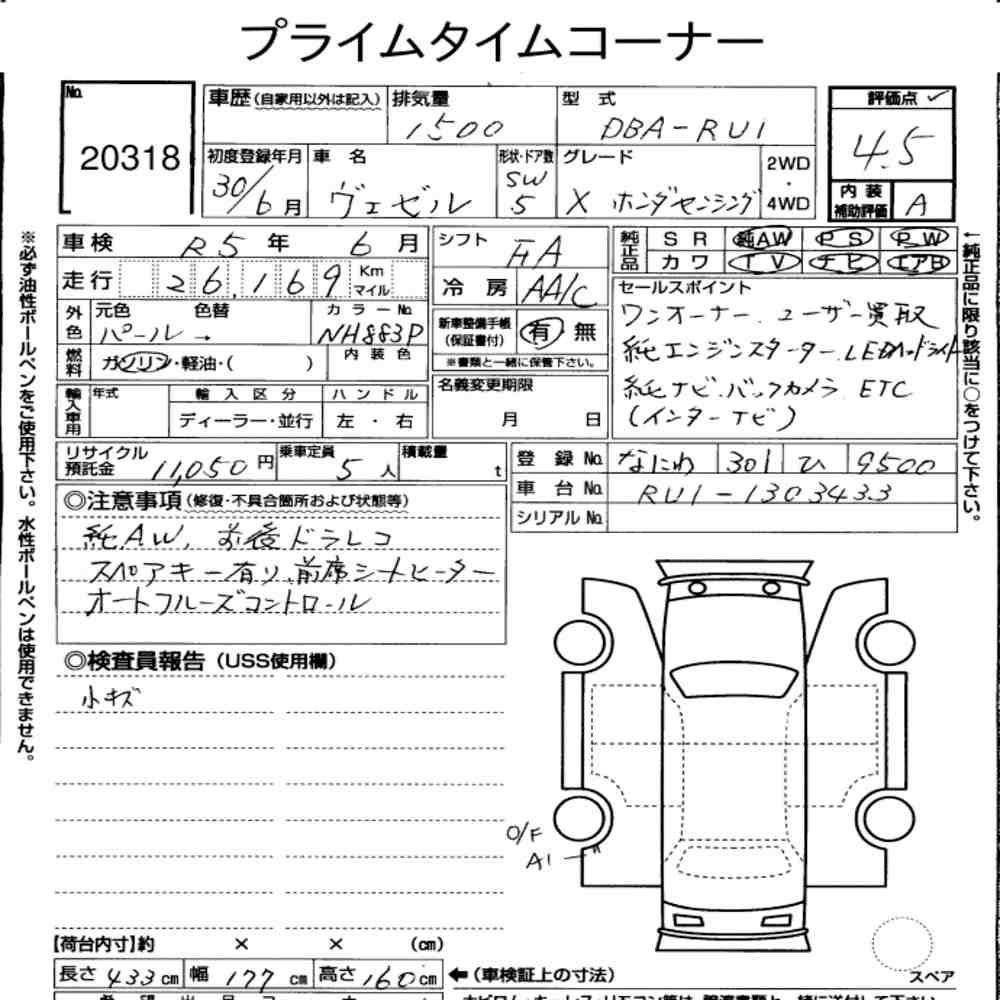 プライムタイムコーナー
No.
20318
車歴 (自家用以外は記入)
排気量
1500
型 式
DBA-RU1
評価点
4.5
初度登録年月
30/6月
車 名
ヴェゼル
形状・ドア数
SW
5
グレード
X ホンダセンシング
2WD
・
4WD
内 装
補助評価
A
車検 R5年 6月
走行 26,169 Km
マイル
シフト FA
冷 房 AA/C
純正品
SR 純AW PS PW
カワ TV ナビ エアB
外色
元色 色替
パール →
カラーNo.
NH883P
燃料
ガソリン・軽油・( )
内装色
新車整備手帳
(保証書付)
有 無
※書類と一緒に保管下さい。
セールスポイント
ワンオーナー、ユーザー買取
純エンジンスターター LEDヘッドライト
純ナビ.バックカメラ ETC
(インターナビ)
輸入車用
年式
輸入区分
ディーラー・並行
ハンドル
左 ・ 右
名義変更期限
月 日
リサイクル
預託金 11,050円
乗車定員 5人
積載量 t
登 録 No. なにわ 301 ひ 9500
車 台 No. RU1-1303433
シリアルNo.
◎注意事項 (修復・不具合箇所および状態等)
純AW, 前後ドラレコ
スペアキー有り、前席シートヒーター
オートクルーズコントロール
◎検査員報告 (USS使用欄)
小キズ
O/F
A1
【荷台内寸】約 × × (cm)
長さ 433cm 幅 177cm 高さ 160cm
←(車検証上の寸法)
スペア
※必ず油性ボールペンをご使用下さい。水性ボールペンは使用できません。
←純正品に限り該当に○をつけて下さい。